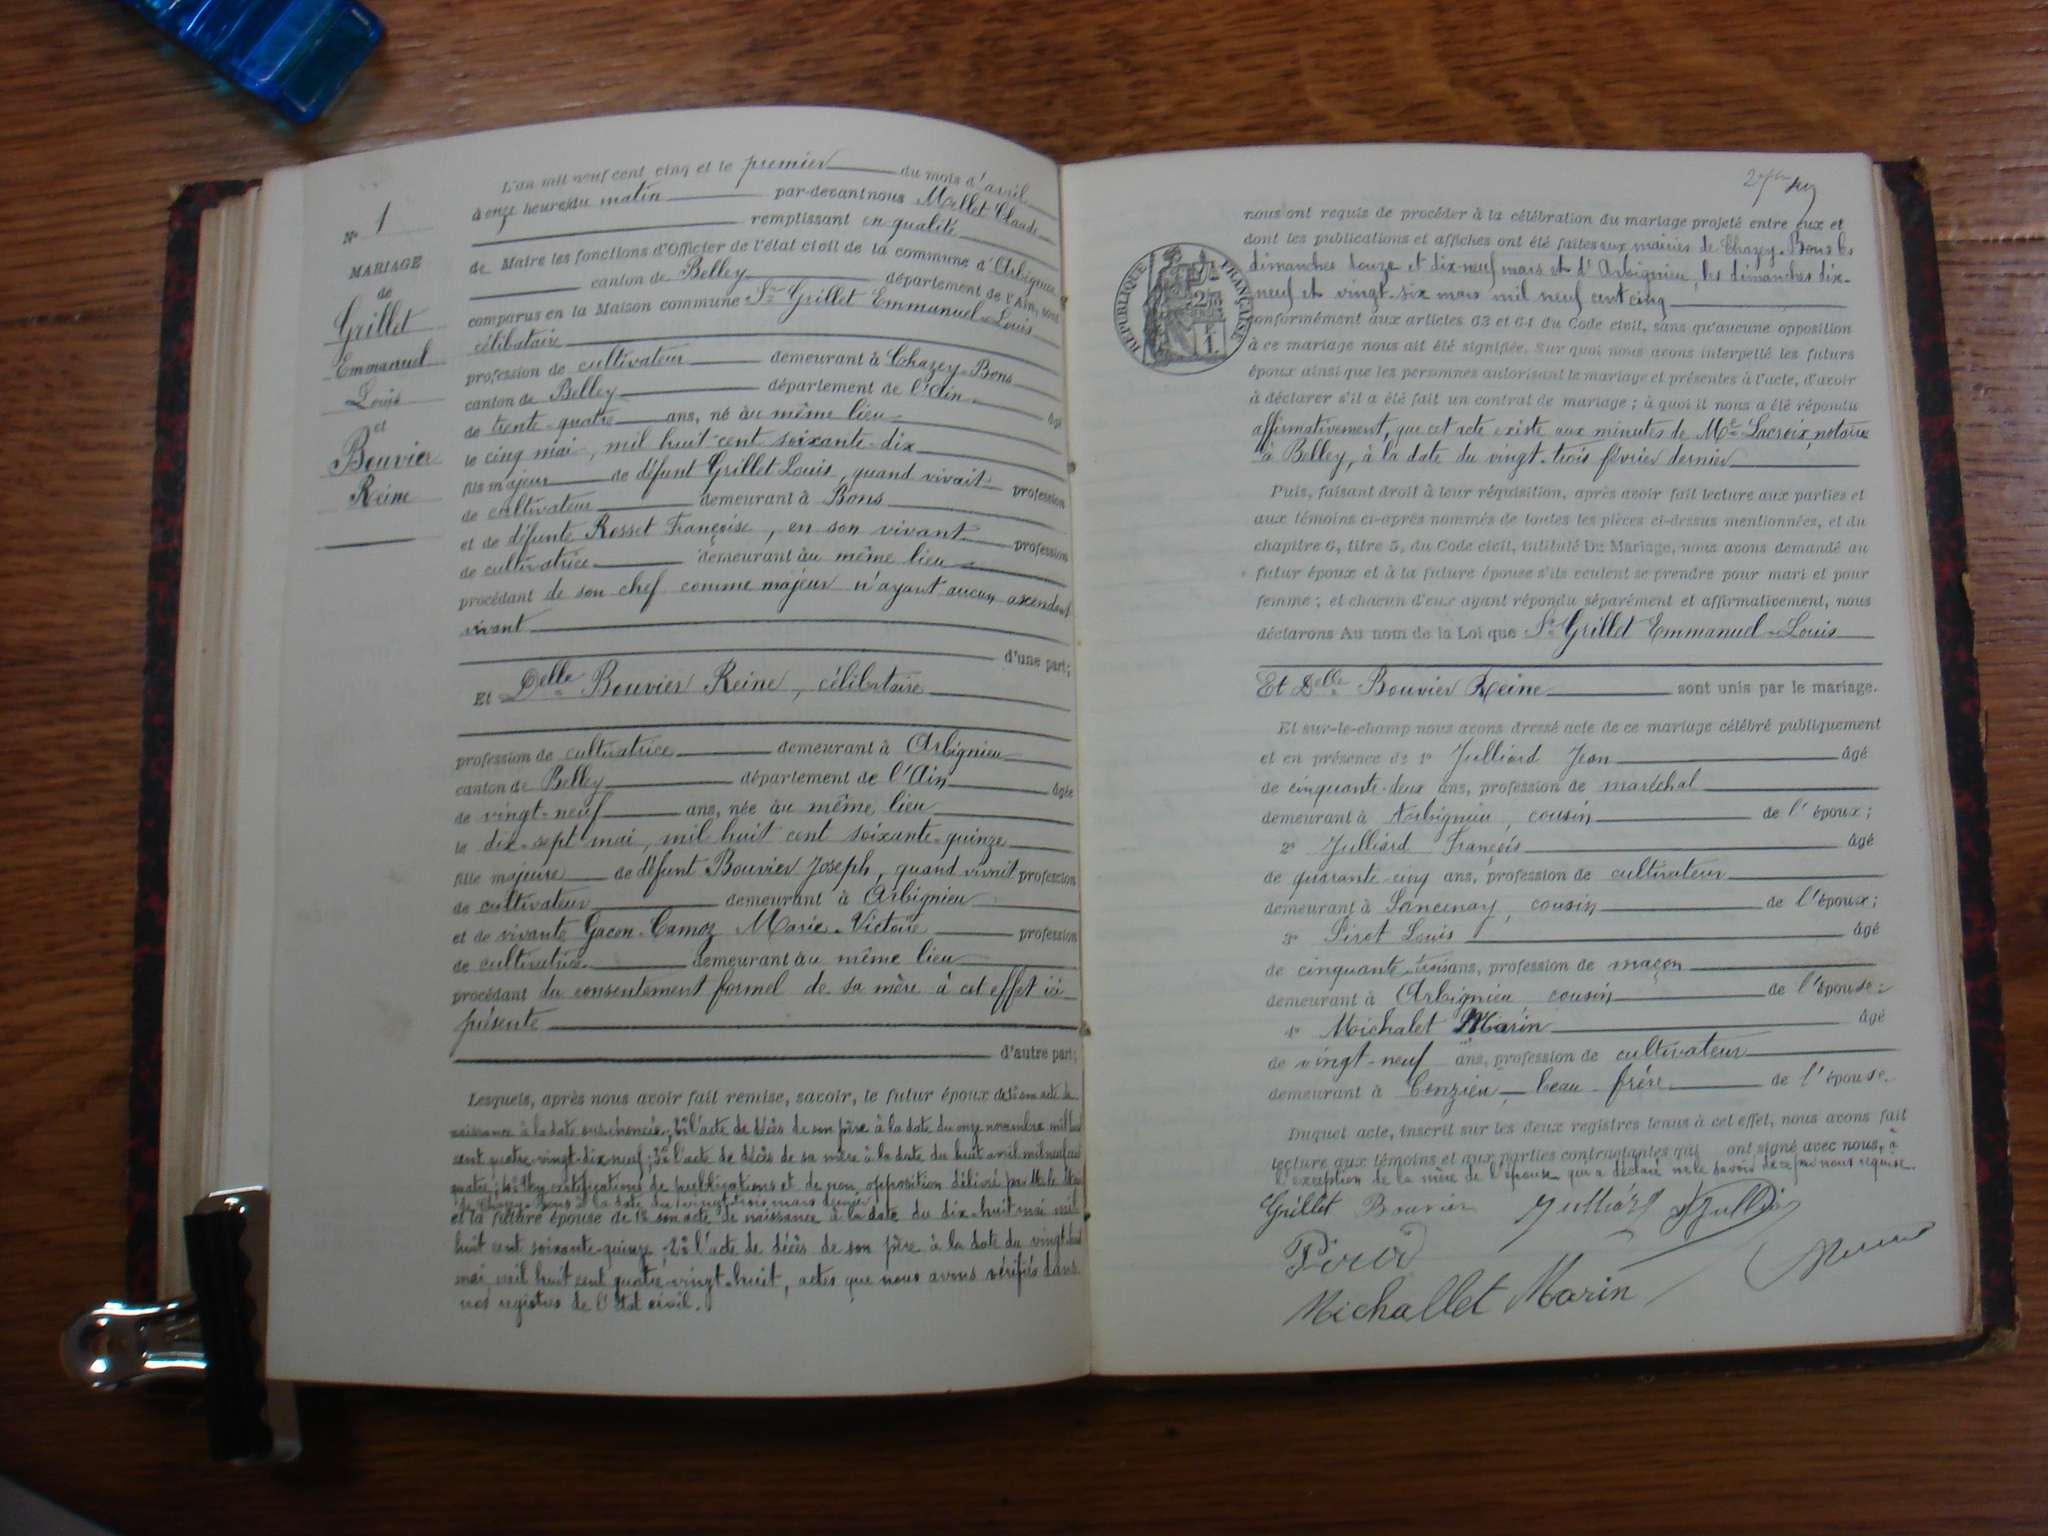 N° 1
MARIAGE
de
Grillet
Emmanuel
Louis
et
Bouvier
Reine
L'an mil neuf cent cinq et le premier du mois d'avril
à onze heures du matin par-devant nous Mollet Claude
remplissant en qualité
de Maire les fonctions d'Officier de l'état civil de la commune d'Arbignieu
canton de Belley département de l'Ain, sont
comparus en la Maison commune Sr Grillet Emmanuel-Louis
célibataire
profession de cultivateur demeurant à Chazey-Bons
canton de Belley département de l'Ain âgé
de trente-quatre ans, né au même lieu
le cinq mai, mil huit cent soixante-dix
fils majeur de défunt Grillet Louis, quand vivait profession
de cultivateur demeurant à Bons
et de défunte Rosset Françoise, en son vivant profession
de cultivatrice demeurant au même lieu
procédant de son chef comme majeur n'ayant aucun axendant
vivant
d'une part;
Et Delle Bouvier Reine, célibataire
profession de cultivatrice demeurant à Arbignieu
canton de Belley département de l'Ain âgée
de vingt-neuf ans, née au même lieu
le dix-sept mai, mil huit cent soixante-quinze
fille majeure de défunt Bouvier Joseph, quand vivait profession
de cultivateur demeurant à Arbignieu
et de vivante Gacon-Camoz Marie-Victoire profession
de cultivatrice demeurant au même lieu
procédant du consentement formel de sa mère à cet effet ici
présente
d'autre part;
Lesquels, après nous avoir fait remise, savoir, le futur époux de 1° son acte de
naissance à la date sus énoncée; 2° l'acte de décès de son père à la date du onze novembre mil huit
cent quatre-vingt-dix-neuf; 3° l'acte de décès de sa mère à la date du huit avril mil neuf cent
quatre; 4° certifications de publications et de non opposition délivré par Mr le Maire
de Chazey-Bons à la date du vingt trois mars dernier
et la future épouse de 1° son acte de naissance à la date du dix-huit mai mil
huit cent soixante-quinze; 2° l'acte de décès de son père à la date du vingt
mai mil huit cent quatre-vingt-huit, actes que nous avons vérifiés dans
nos registres de l'état civil.
nous ont requis de procéder à la célébration du mariage projeté entre eux et
dont les publications et affiches ont été faites aux mairies de Chazey-Bons les
dimanches douze et dix-neuf mars et d'Arbignieu, les dimanches dix-
neuf et vingt-six mars mil neuf cent cinq
conformément aux articles 63 et 64 du Code civil, sans qu'aucune opposition
à ce mariage nous ait été signifiée. Sur quoi nous avons interpellé les futurs
époux ainsi que les personnes autorisant le mariage et présentes à l'acte, d'avoir
à déclarer s'il a été fait un contrat de mariage; à quoi il nous a été répondu
affirmativement, que cet acte existe aux minutes de Me Lacroix, notaire
à Belley, à la date du vingt-trois février dernier
Puis, faisant droit à leur réquisition, après avoir fait lecture aux parties et
aux témoins ci-après nommés de toutes les pièces ci-dessus mentionnées, et du
chapitre 6, titre 5, du Code civil, intitulé Du Mariage, nous avons demandé au
futur époux et à la future épouse s'ils veulent se prendre pour mari et pour
femme; et chacun d'eux ayant répondu séparément et affirmativement, nous
déclarons Au nom de la Loi que Sr Grillet Emmanuel-Louis
Et Delle Bouvier Reine sont unis par le mariage.
Et sur-le-champ nous avons dressé acte de ce mariage célébré publiquement
et en présence de 1° Julliard Jean âgé
de cinquante-deux ans, profession de maréchal
demeurant à Arbignieu, cousin de l'époux;
2° Julliard François âgé
de quarante-cinq ans, profession de cultivateur
demeurant à Sancenay, cousin de l'époux;
3° Sirot Louis âgé
de cinquante-trois ans, profession de maçon
demeurant à Arbignieu, cousin de l'épouse;
4° Michalet Marin âgé
de vingt-neuf ans, profession de cultivateur
demeurant à Conzieu, beau-frère de l'épouse.
Duquel acte, inscrit sur les deux registres tenus à cet effet, nous avons fait
lecture aux témoins et aux parties contractantes qui ont signé avec nous, à
l'exception de la mère de l'épouse qui a déclaré ne le savoir de ce par nous requise.
Grillet Bouvier Julliard
Michallet Marin
RÉPUBLIQUE FRANÇAISE